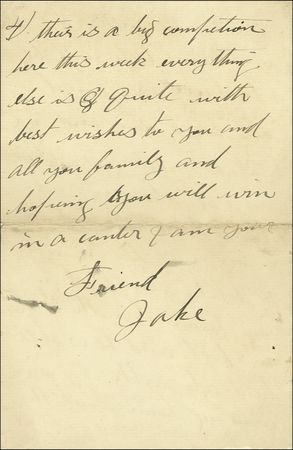 4) theis is a big competion
here this week everything
else is Q Quite with
best wishes to you and
all you family and
hopeing you will win
in a canter I am your
Friend
Jake